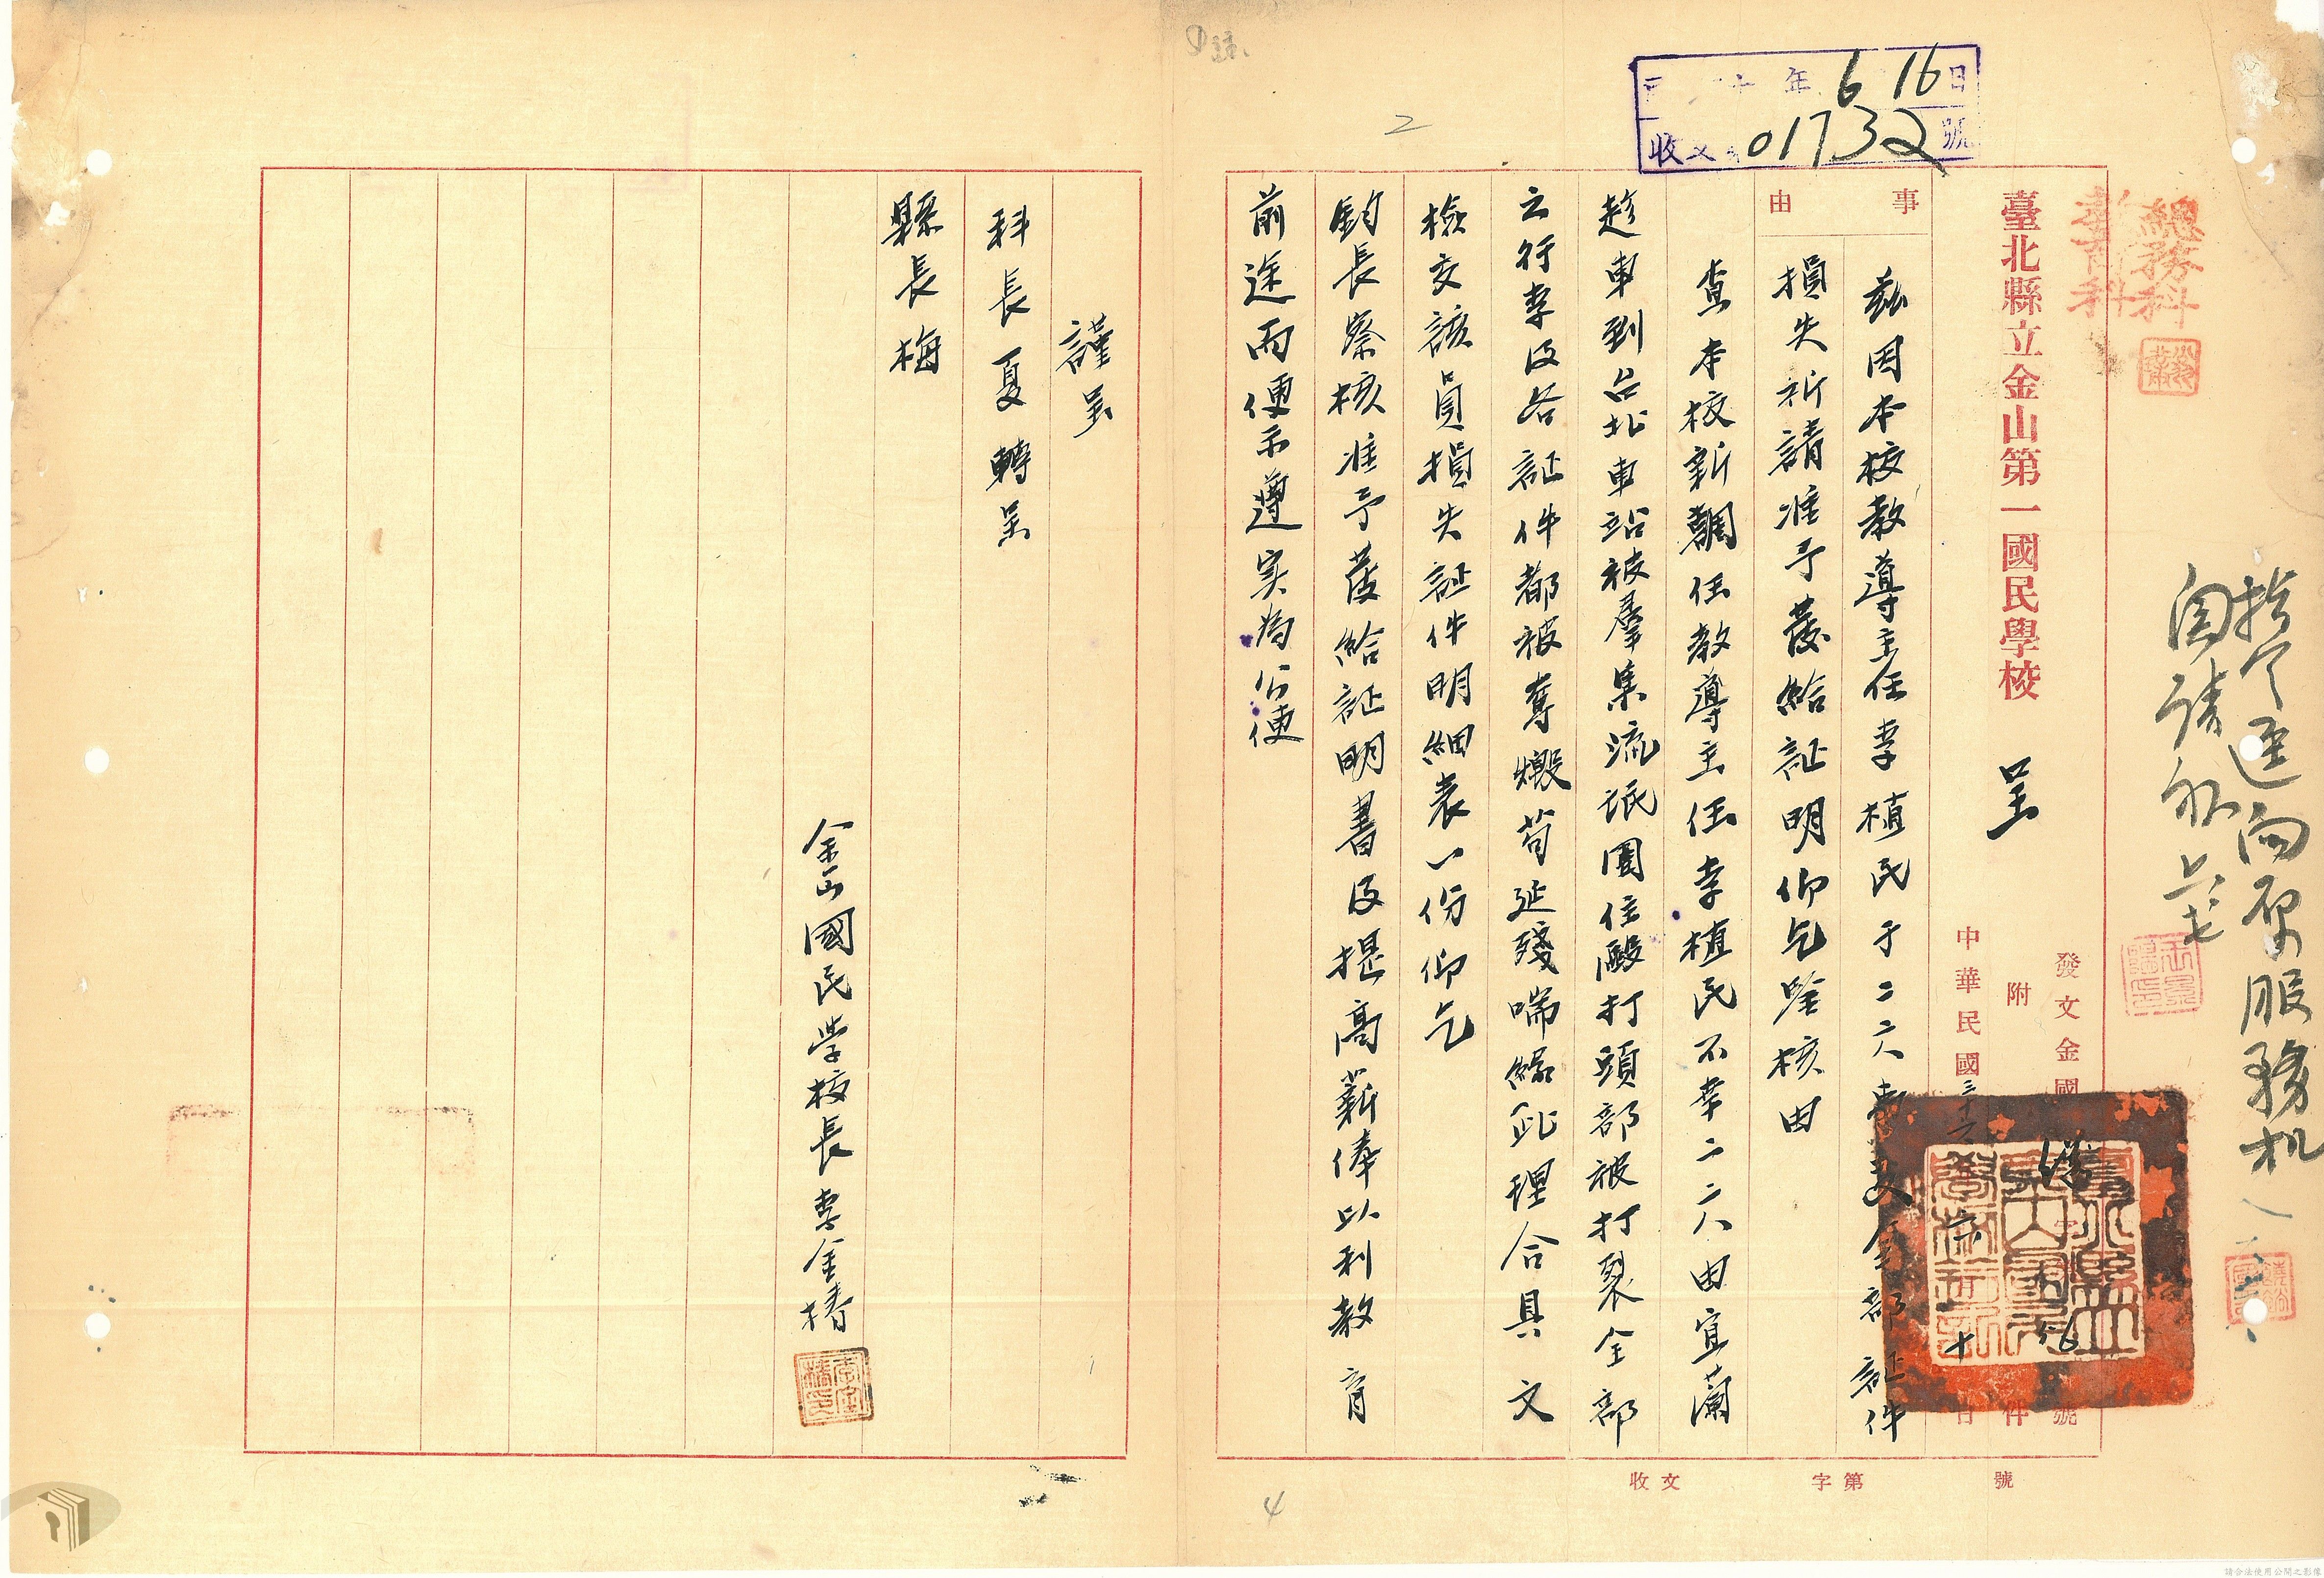 年 6 16 日
收文 01732 號
總務科
指令逕向原服務机
臺北縣立金山第一國民學校 呈
發文金國 號
附 件
中華民國三十六 六 十 日
事由
茲因本校教導主任李植民于二二八事变全部証件
損失祈請准予發給証明仰乞鑒核由
查本校新調任教導主任李植民不幸二二八由宜蘭
趁車到台北車站被羣集流氓圍住毆打頭部被打裂全部
之行李及各証件都被奪燬苟延殘喘緣此理合具文
檢交該員損失証件明細表一份仰乞
鈞長察核准予發給証明書及提高薪俸以利教育
前途而便示遵实為公便
謹呈
科長夏 轉呈
縣長梅
金山國民学校長李金椿
收文 字第 號
2
4
請合法使用公開之影像